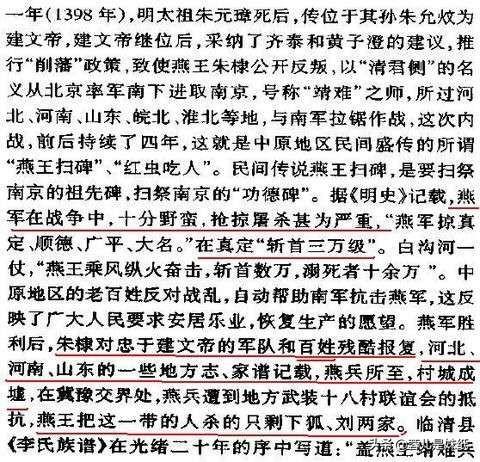 一年(1398年),明太祖朱元璋死后,传位于其孙朱允炆为
建文帝,建文帝继位后,采纳了齐泰和黄子澄的建议,推
行“削藩”政策,致使燕王朱棣公开反叛,以“清君侧”的名
义从北京率军南下进取南京,号称“靖难”之师,所过河
北、河南、山东、皖北、淮北等地,与南军拉锯作战,这次内
战,前后持续了四年,这就是中原地区民间盛传的所谓
“燕王扫碑”、“红虫吃人”。民间传说燕王扫碑,是要扫祭
南京的祖先碑,扫祭南京的“功德碑”。据《明史》记载,燕
军在战争中,十分野蛮,抢掠屠杀甚为严重,“燕军掠真
定、顺德、广平、大名。”在真定“斩首三万级”。白沟河一
仗,“燕王乘风纵火奋击,斩首数万,溺死者十余万”。中
原地区的老百姓反对战乱,自动帮助南军抗击燕军,这反
映了广大人民要求安居乐业,恢复生产的愿望。燕军胜
利后,朱棣对忠于建文帝的军队和百姓残酷报复,河北、
河南、山东的一些地方志、家谱记载,燕兵所至,村城成
墟,在冀豫交界处,燕兵遭到地方武装十八村联谊会的抵
抗,燕王把这一带的人杀的只剩下狐、刘两家。临清县
《李氏族谱》在光绪二十年的序中写道:“盖燕王靖难兵